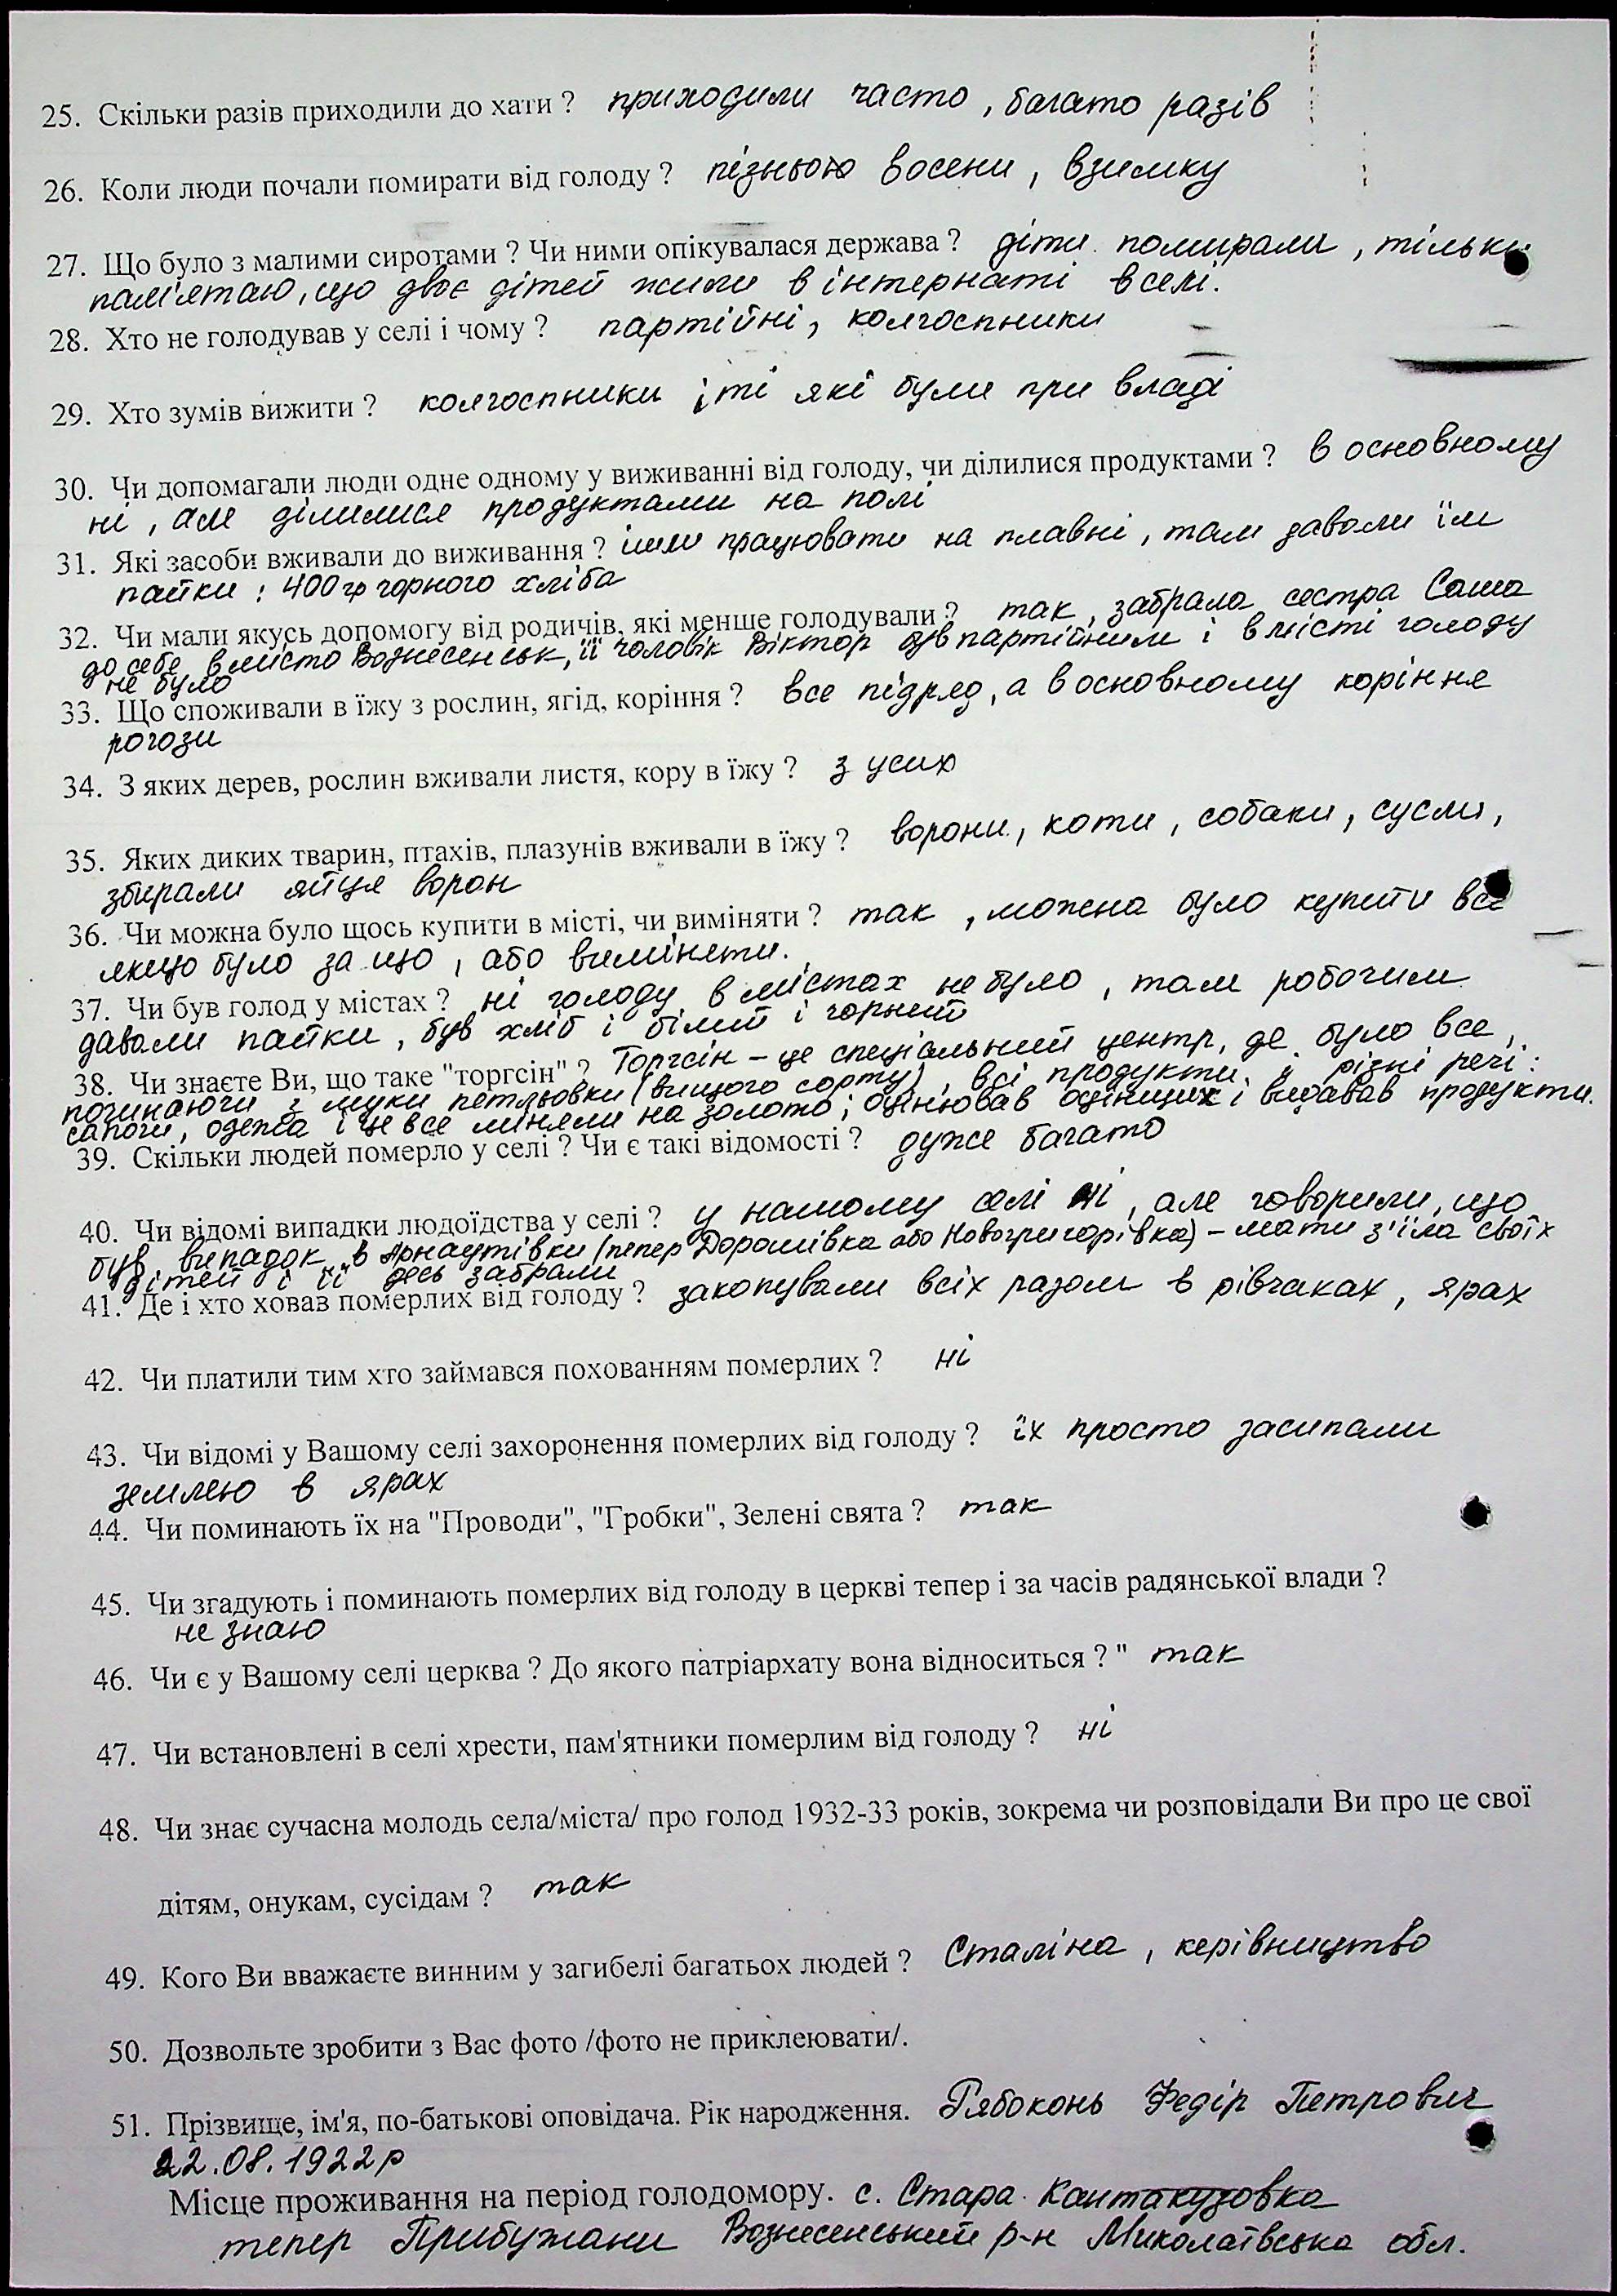 25. Скільки разів приходили до хати ? приходили часто, багато разів
26. Коли люди почали помирати від голоду ? пізньою восени, взимку
27. Що було з малими сиротами ? Чи ними опікувалася держава ? діти помирали, тільки
пам'ятаю, що двоє дітей жили в інтернаті в селі.
28. Хто не голодував у селі і чому ? партійні, колгоспники
29. Хто зумів вижити ? колгоспники і ті які були при владі
30. Чи допомагали люди одне одному у виживанні від голоду, чи ділилися продуктами ? в основному
ні, але ділилися продуктами на полі
31. Які засоби вживали до виживання ? ішли працювати на плавні, там давали їм
пайки : 400 гр чорного хліба
32. Чи мали якусь допомогу від родичів, які менше голодували ? так, забрала сестра Саша
до себе в місто Вознесенськ, її чоловік Віктор був партійним і в місті голоду
не було
33. Що споживали в їжу з рослин, ягід, коріння ? все підряд, а в основному коріння
рогози
34. З яких дерев, рослин вживали листя, кору в їжу ? з усих
35. Яких диких тварин, птахів, плазунів вживали в їжу ? ворони, коти, собаки, сусли,
збирали яйця ворон
36. Чи можна було щось купити в місті, чи виміняти ? так, можна було купити все
якщо було за що, або виміняти.
37. Чи був голод у містах ? ні голоду в містах не було, там робочим
давали пайки, був хліб і білий і чорний
38. Чи знаєте Ви, що таке "торгсін" ? Торгсін – це спеціальний центр, де було все,
починаючи з муки петльовки (вищого сорту), всі продукти, різні речі:
сапоги, одежа і це все міняли на золото; оцінював оцінщик і видавав продукти.
39. Скільки людей померло у селі ? Чи є такі відомості ? дуже багато
40. Чи відомі випадки людоїдства у селі ? у нашому селі ні, але говорили, що
був випадок в Арнаутівки (тепер Дорошівка або Новогригорівка) – мати з'їла своїх
дітей і її десь забрали
41. Де і хто ховав померлих від голоду ? закопували всіх разом в рівчаках, ярах
42. Чи платили тим хто займався похованням померлих ? ні
43. Чи відомі у Вашому селі захоронення померлих від голоду ? їх просто засипали
землею в ярах
44. Чи поминають їх на "Проводи", "Гробки", Зелені свята ? так
45. Чи згадують і поминають померлих від голоду в церкві тепер і за часів радянської влади ?
не знаю
46. Чи є у Вашому селі церква ? До якого патріархату вона відноситься ? " так
47. Чи встановлені в селі хрести, пам'ятники померлим від голоду ? ні
48. Чи знає сучасна молодь села/міста/ про голод 1932-33 років, зокрема чи розповідали Ви про це свої
дітям, онукам, сусідам ? так
49. Кого Ви вважаєте винним у загибелі багатьох людей ? Сталіна, керівництво
50. Дозвольте зробити з Вас фото /фото не приклеювати/.
51. Прізвище, ім'я, по-батькові оповідача. Рік народження. Рябоконь Федір Петрович
22.08.1922 р
Місце проживання на період голодомору. с. Стара Кантакузовка
тепер Прибужани Вознесенський р-н Миколаївська обл.